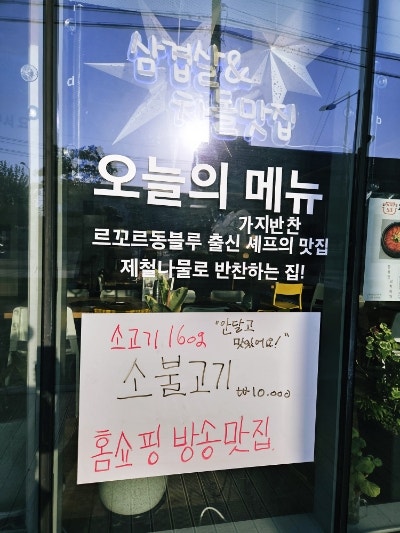 삼겹살&
맛집
오늘의 메뉴
가지반찬
르꼬르동블루 출신 셰프의 맛집
제철나물로 반찬하는 집!
소고기 160g "안달고
맛있어요!"
소불고기 ₩10.000
홈쇼핑 방송맛집